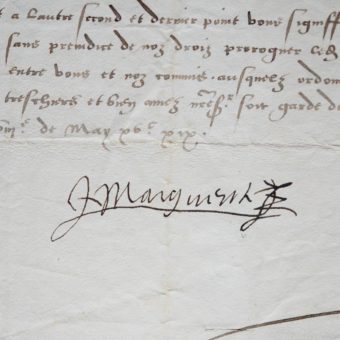 a lautre second et dernier point vous signiff
sans preiudice de noz droiz proroguer led
entre vous et noz commis . ausquelz ordon
treschiers et bien amez nre sr soit garde de
de May xvc xix .
Marguerite